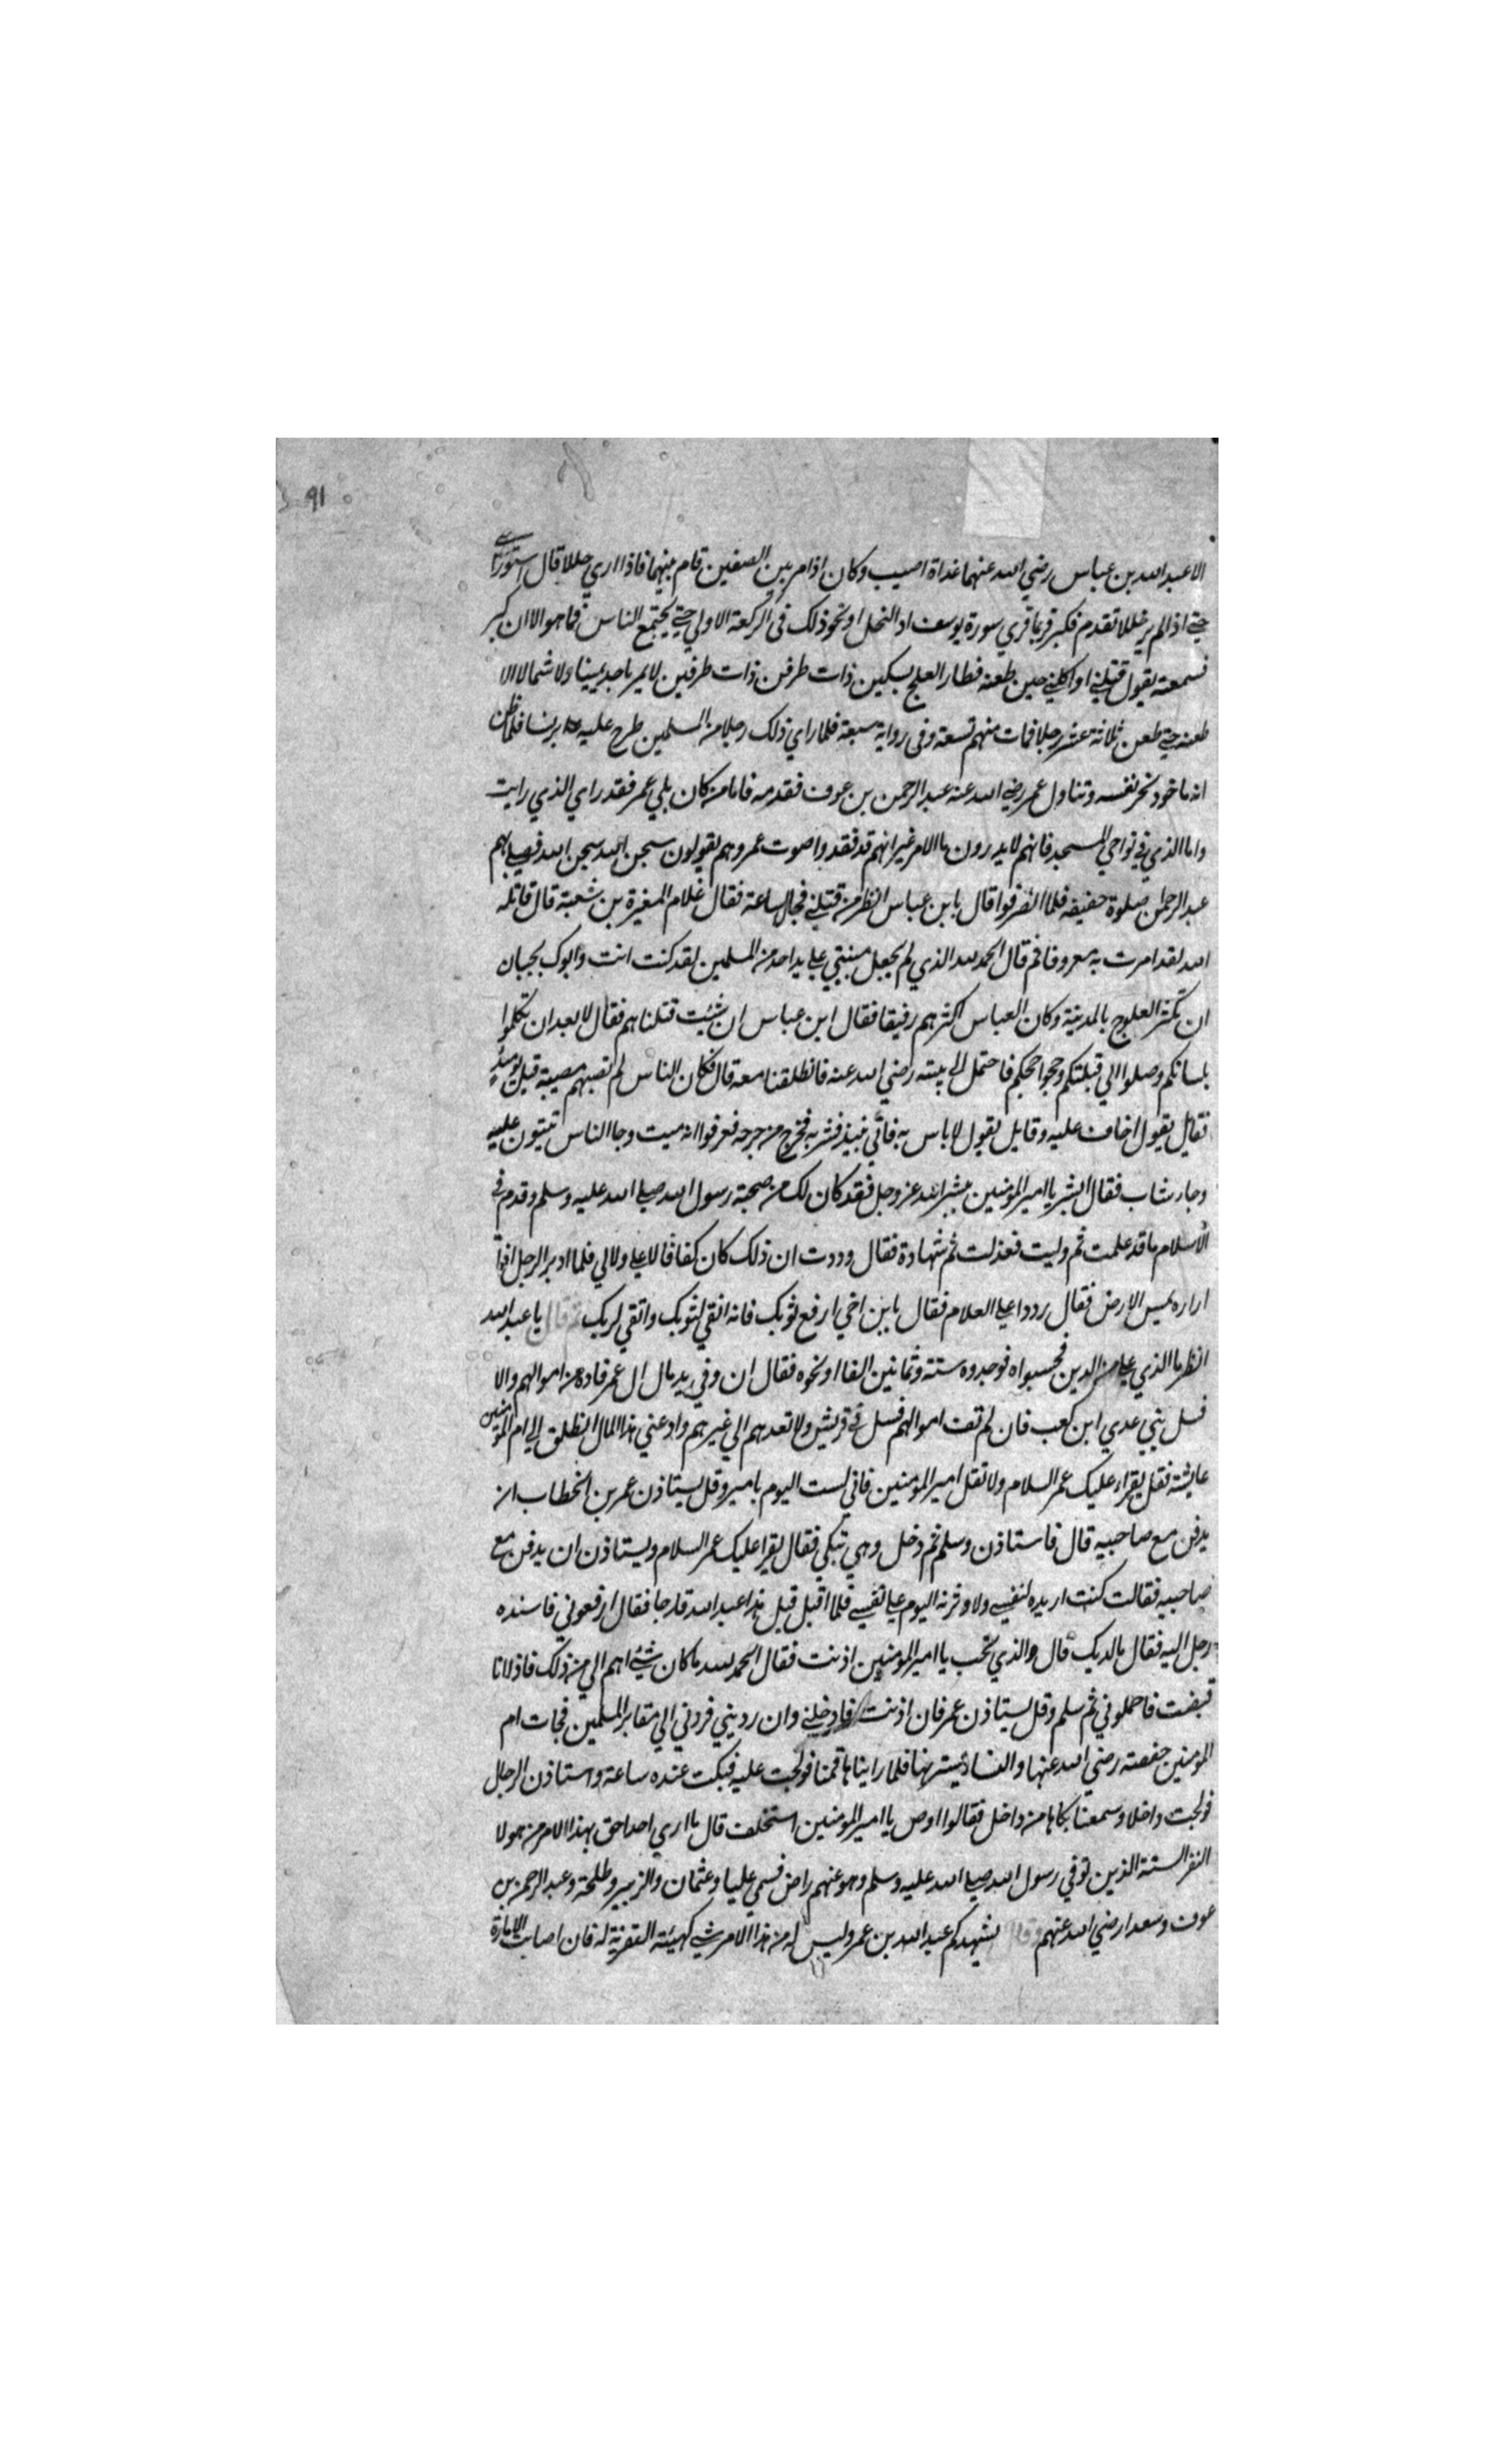 ٩١
الا عبد الله بن عباس رضي الله عنهما غداة اصيب وكان اذا مر بين الصفين قام بينهما فاذا اري خللا قال استووا
حتي اذا لم ير خللا تقدم فكبر فربما قري سورة يوسف او النحل او نحو ذلك في الركعة الاولي حتي يجتمع الناس فما هو الا ان كبر
فسمعته يقول قتلني او اكلني حين طعنه فطار العلج بسكين ذات طرفين ذات طرفين لا يمر باحد يمينا ولا شمالا الا
طعنه حتي طعن ثلاثة عشر رجلا فمات منهم تسعة وفي رواية سبعة فلما راي ذلك رجلا من المسلمين طرح عليه برنسا فلما ظن
انه ماخوذ نحر نفسه وتناول عمر رضي الله عنه عبد الرحمن بن عوف فقدمه فاما من كان يلي عمر فقد راي الذي رايت
واما الذي في نواحي المسجد فانهم لا يدرون ما الامر غير انهم قد فقدوا صوت عمر وهم يقولون سبحن الله سبحن الله فصلي بهم
عبد الرحمن صلوة خفيفه فلما انصرفوا قال يا بن عباس انظر من قتلني فجال ساعة فقال غلام المغيرة بن شعبة قال قاتله
الله لقد امرت به معروفا ثم قال الحمد لله الذي لم يجعل منيتي علي يد احد من المسلمين لقد كنت انت وابوك تحبان
ان تكثر العلوج بالمدينة وكان العباس اكثرهم رقيقا فقال ابن عباس ان شئت قتلناهم فقال لا بعد ان تكلموا
بلسانكم وصلوا الي قبلتكم وحجوا حجكم فاحتمل الي بيته رضي الله عنه فانطلقنا معه قال فكان الناس لم تصبهم مصيبة قبل يومئذ
فقايل يقول اخاف عليه وقايل يقول لا باس به فاتي نبيذ فشربه فخرج من جرحه فعرفوا انه ميت وجا الناس يثنون عليه
وجا رشاب فقال ابشر يا امير المومنين ببشر الله عز وجل فقد كان لك من صحبة رسول الله صلي الله عليه وسلم وقدم في
الاسلام ما قد علمت ثم وليت فعدلت ثم شهادة فقال وددت ان ذلك كان كفافا لا علي ولا لي فلما ادبر الرجل اذا
ازاره يمس الارض فقال ردوا علي الغلام فقال يا بن اخي ارفع ثوبك فانه انقي لثوبك واتقي لربك ثم قال يا عبد الله
انظر ما الذي علي من الدين فحسبوه فوجدوه ستة وثمانين الفا او نحوه فقال ان وفي يد مال ال عمر فاده من اموالهم والا
فسل بني عدي ابن كعب فان لم تف اموالهم فسل في قريش ولا تعدهم الي غيرهم واد عني هذا المال انطلق الي ام المومنين
عايشة فقل يقراء عليك عمر السلام ولا تقل امير المومنين فاني لست اليوم بامير وقل يستاذن عمر بن الخطاب ان
يدفن مع صاحبيه قال فاستاذن وسلم ثم دخل وهي تبكي فقال يقرا عليك عمر السلام ويستاذن ان يدفن مع
صاحبيه فقالت كنت اريده لنفسي ولاوثرنه اليوم علي نفسي فلما اقبل قيل هذا عبد الله قد جا فقال ارفعوني فاسنده
رجل اليه فقال ما لديك قال الذي تحب يا امير المومنين اذنت فقال الحمد لله ما كان شيئ اهم الي من ذلك فاذا انا
قبضت فاحملوني ثم سلم وقل يستاذن عمر فان اذنت فادخلني وان ردتني فردني الي مقابر المسلمين فجات ام
المومنين حفصة رضي الله عنها والنسا يسترنها فلما رايناها قمنا فولجت عليه فبكت عنده ساعة واستاذن الرجال
فولجت داخلا وسمعنا بكاها من داخل فقالوا اوص يا امير المومنين استخلف قال ما اري احدا حق بهذا الامر من هولا
النفر الستة الذين توفي رسول الله صلي الله عليه وسلم وهو عنهم راض فسمي عليا وعثمان والزبير وطلحة وعبد الرحمن بن
عوف وسعدا رضي الله عنهم وقال يشهدكم عبد الله بن عمر وليس له من هذا الامر شي كهيئة التعزية له فان اصابت الامارة